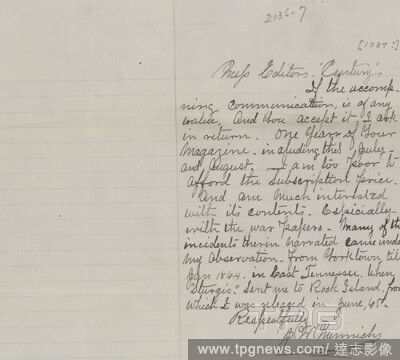 2136-7
[1887?]
Mess Editors. Century's
If the accomp-
ning communication, is of any
value, and you accept it, I ask
in return. One Years of Your
Magazine - including this July -
and August. I am too poor to
afford the subscription price.
And am much interested
with its contents. Espicially
with the war papers - many of the
incidents therin narrated came under
my observation - from Yorktown till
Jan 1864. in East Tennessee. when
"Sturgis" sent me to Rock Island, from
which I was released in June, 65.
Respectfully
www.tpgnews.com / 達志影像